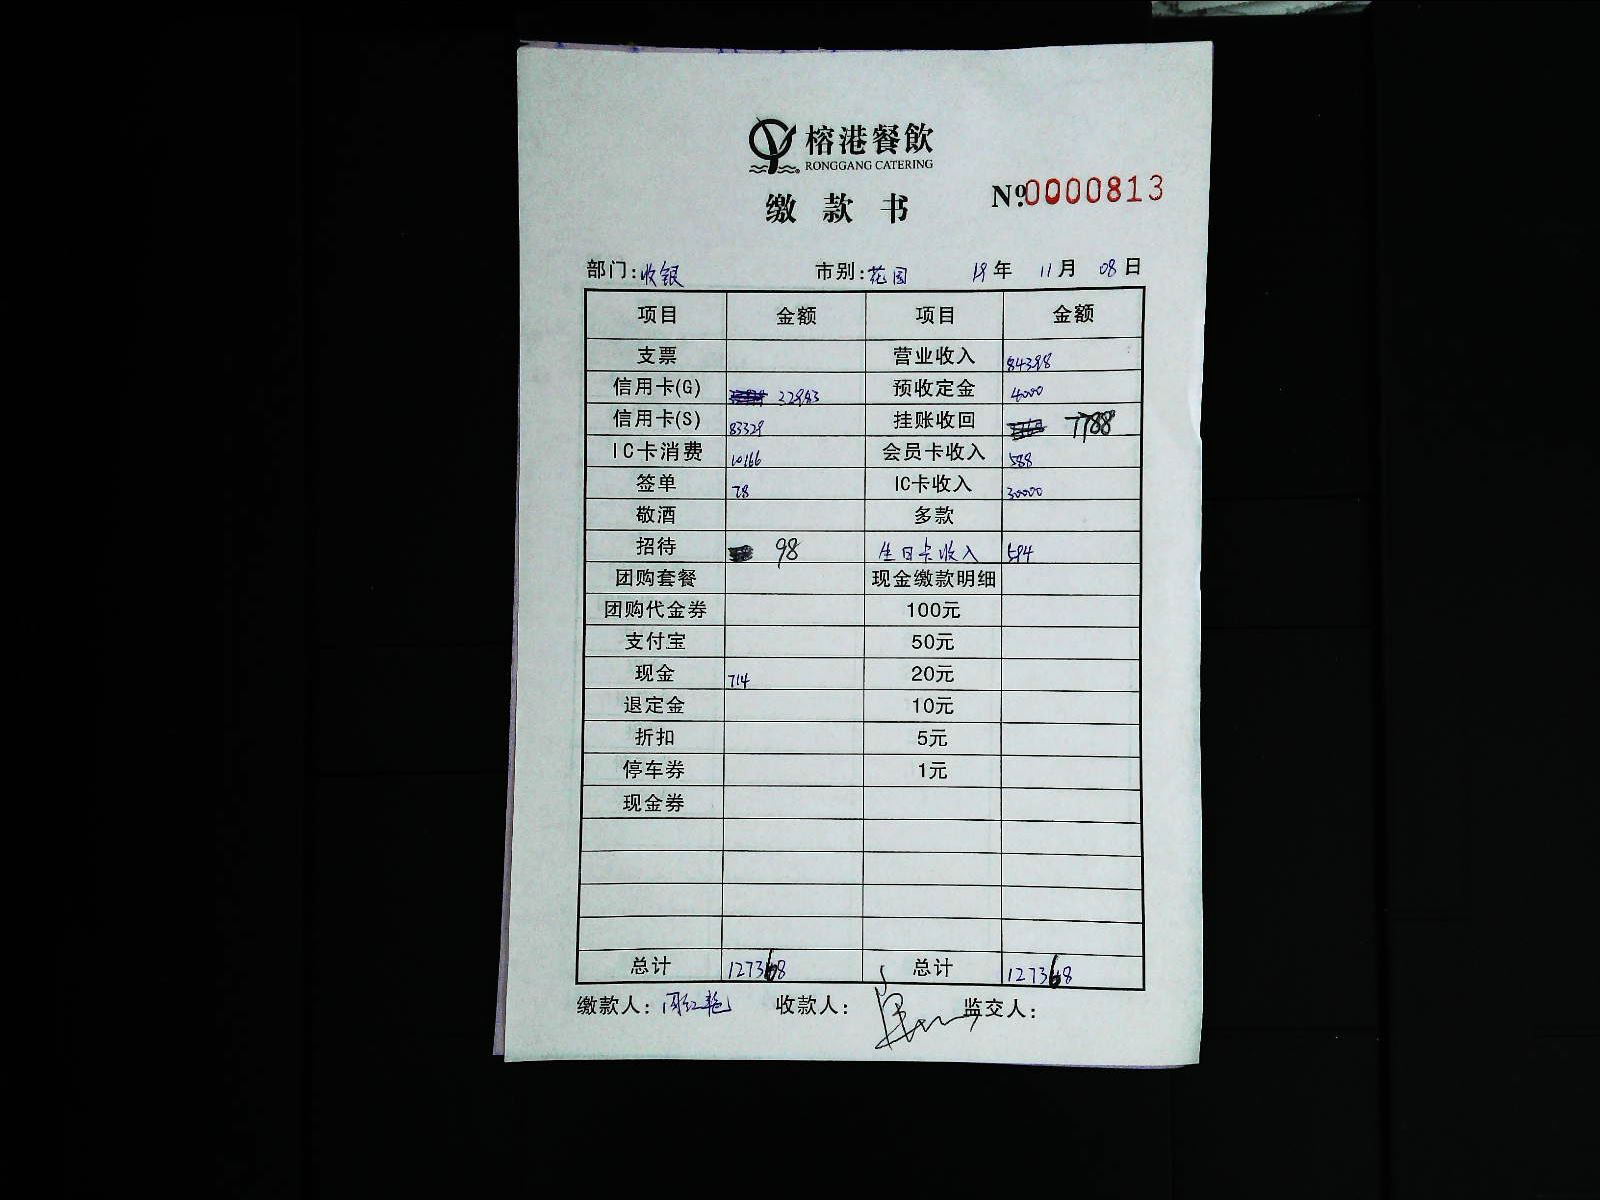 榕港餐飲
RONGGANG CATERING
缴款书 №0000813
部门:收银 市别:花园 19年 11月 08日
项目 金额 项目 金额
支票 营业收入 84398
信用卡(G) 32983 预收定金 4000
信用卡(S) 83329 挂账收回 7788
IC卡消费 10166 会员卡收入 588
签单 78 IC卡收入 30000
敬酒 多款
招待 98 生日卡收入 594
团购套餐 现金缴款明细
团购代金券 100元
支付宝 50元
现金 714 20元
退定金 10元
折扣 5元
停车券 1元
现金券
总计 127368 总计 127368
缴款人: 周红艳 收款人: 监交人: